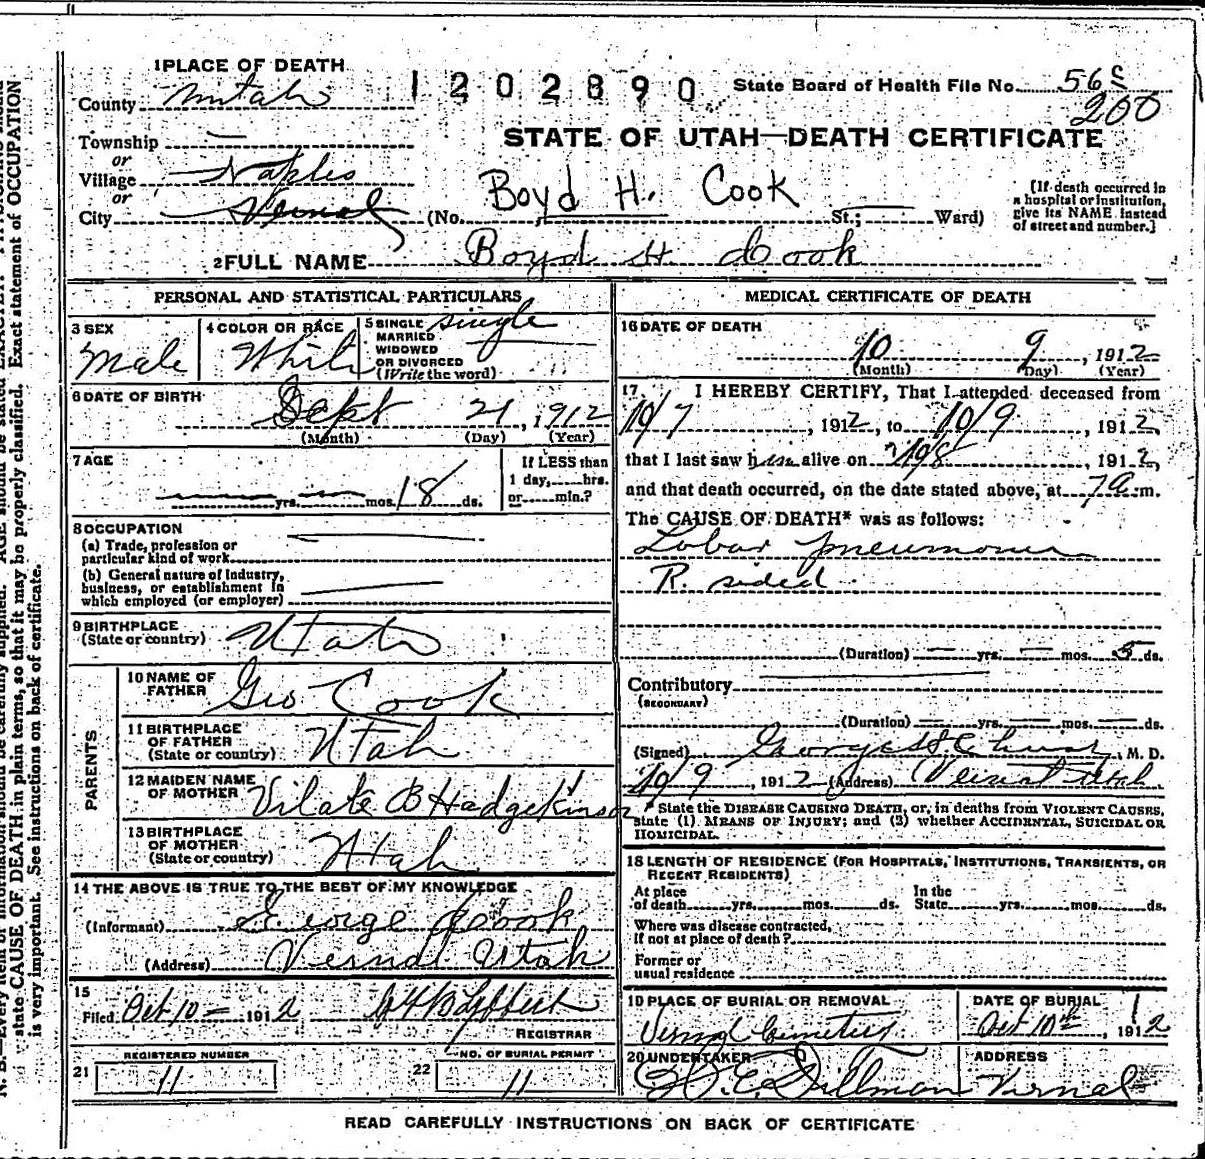 1 PLACE OF DEATH
1202890
State Board of Health File No. 56
200
County
STATE OF UTAH—DEATH CERTIFICATE
Township
or
Village Naples
or
City Vernal (No. Boyd H. Cook St.; Ward)
[If death occurred in
a hospital or institution,
give its NAME instead
of street and number.]
2 FULL NAME Boyd H Cook
PERSONAL AND STATISTICAL PARTICULARS
3 SEX
Male
4 COLOR OR RACE
White
5 SINGLE single
MARRIED
WIDOWED
OR DIVORCED
(Write the word)
6 DATE OF BIRTH
Sept 21, 1912
(Month) (Day) (Year)
7 AGE
yrs. mos. 18 ds.
If LESS than
1 day, hrs.
or min.?
8 OCCUPATION
(a) Trade, profession or
particular kind of work
(b) General nature of industry,
business, or establishment in
which employed (or employer)
9 BIRTHPLACE
(State or country) Utah
PARENTS
10 NAME OF
FATHER Geo Cook
11 BIRTHPLACE
OF FATHER
(State or country) Utah
12 MAIDEN NAME
OF MOTHER Vilate B Hadgekinson
13 BIRTHPLACE
OF MOTHER
(State or country) Utah
14 THE ABOVE IS TRUE TO THE BEST OF MY KNOWLEDGE
(Informant) George Cook
(Address) Vernal Utah
15
Filed Oct 10 — 1912
REGISTRAR
REGISTERED NUMBER
21 11
NO. OF BURIAL PERMIT
22 11
MEDICAL CERTIFICATE OF DEATH
16 DATE OF DEATH
10 9, 1912
(Month) (Day) (Year)
17. I HEREBY CERTIFY, That I attended deceased from
10/7, 1912, to 10/9, 1912,
that I last saw him alive on 10/8, 1912,
and that death occurred, on the date stated above, at 7 a.m.
The CAUSE OF DEATH* was as follows:
Lobar pneumonia
R. sided
(Duration) — yrs. — mos. 5 ds.
Contributory
(SECONDARY)
(Duration) — yrs. — mos. — ds.
(Signed) George H. Christy, M. D.
10/9, 1912 (Address) Vernal Utah
* State the DISEASE CAUSING DEATH, or, in deaths from VIOLENT CAUSES,
state (1) MEANS OF INJURY; and (2) whether ACCIDENTAL, SUICIDAL OR
HOMICIDAL.
18 LENGTH OF RESIDENCE (FOR HOSPITALS, INSTITUTIONS, TRANSIENTS, OR
RECENT RESIDENTS)
At place
of death yrs. mos. ds.
In the
State yrs. mos. ds.
Where was disease contracted,
if not at place of death?
Former or
usual residence
19 PLACE OF BURIAL OR REMOVAL
Vernal Cemetery
DATE OF BURIAL
Oct 10th, 1912
20 UNDERTAKER
Dillman
ADDRESS
Vernal
READ CAREFULLY INSTRUCTIONS ON BACK OF CERTIFICATE
state CAUSE OF DEATH in plain terms, so that it may be properly classified. Exact statement of OCCUPATION
is very important. See instructions on back of certificate.